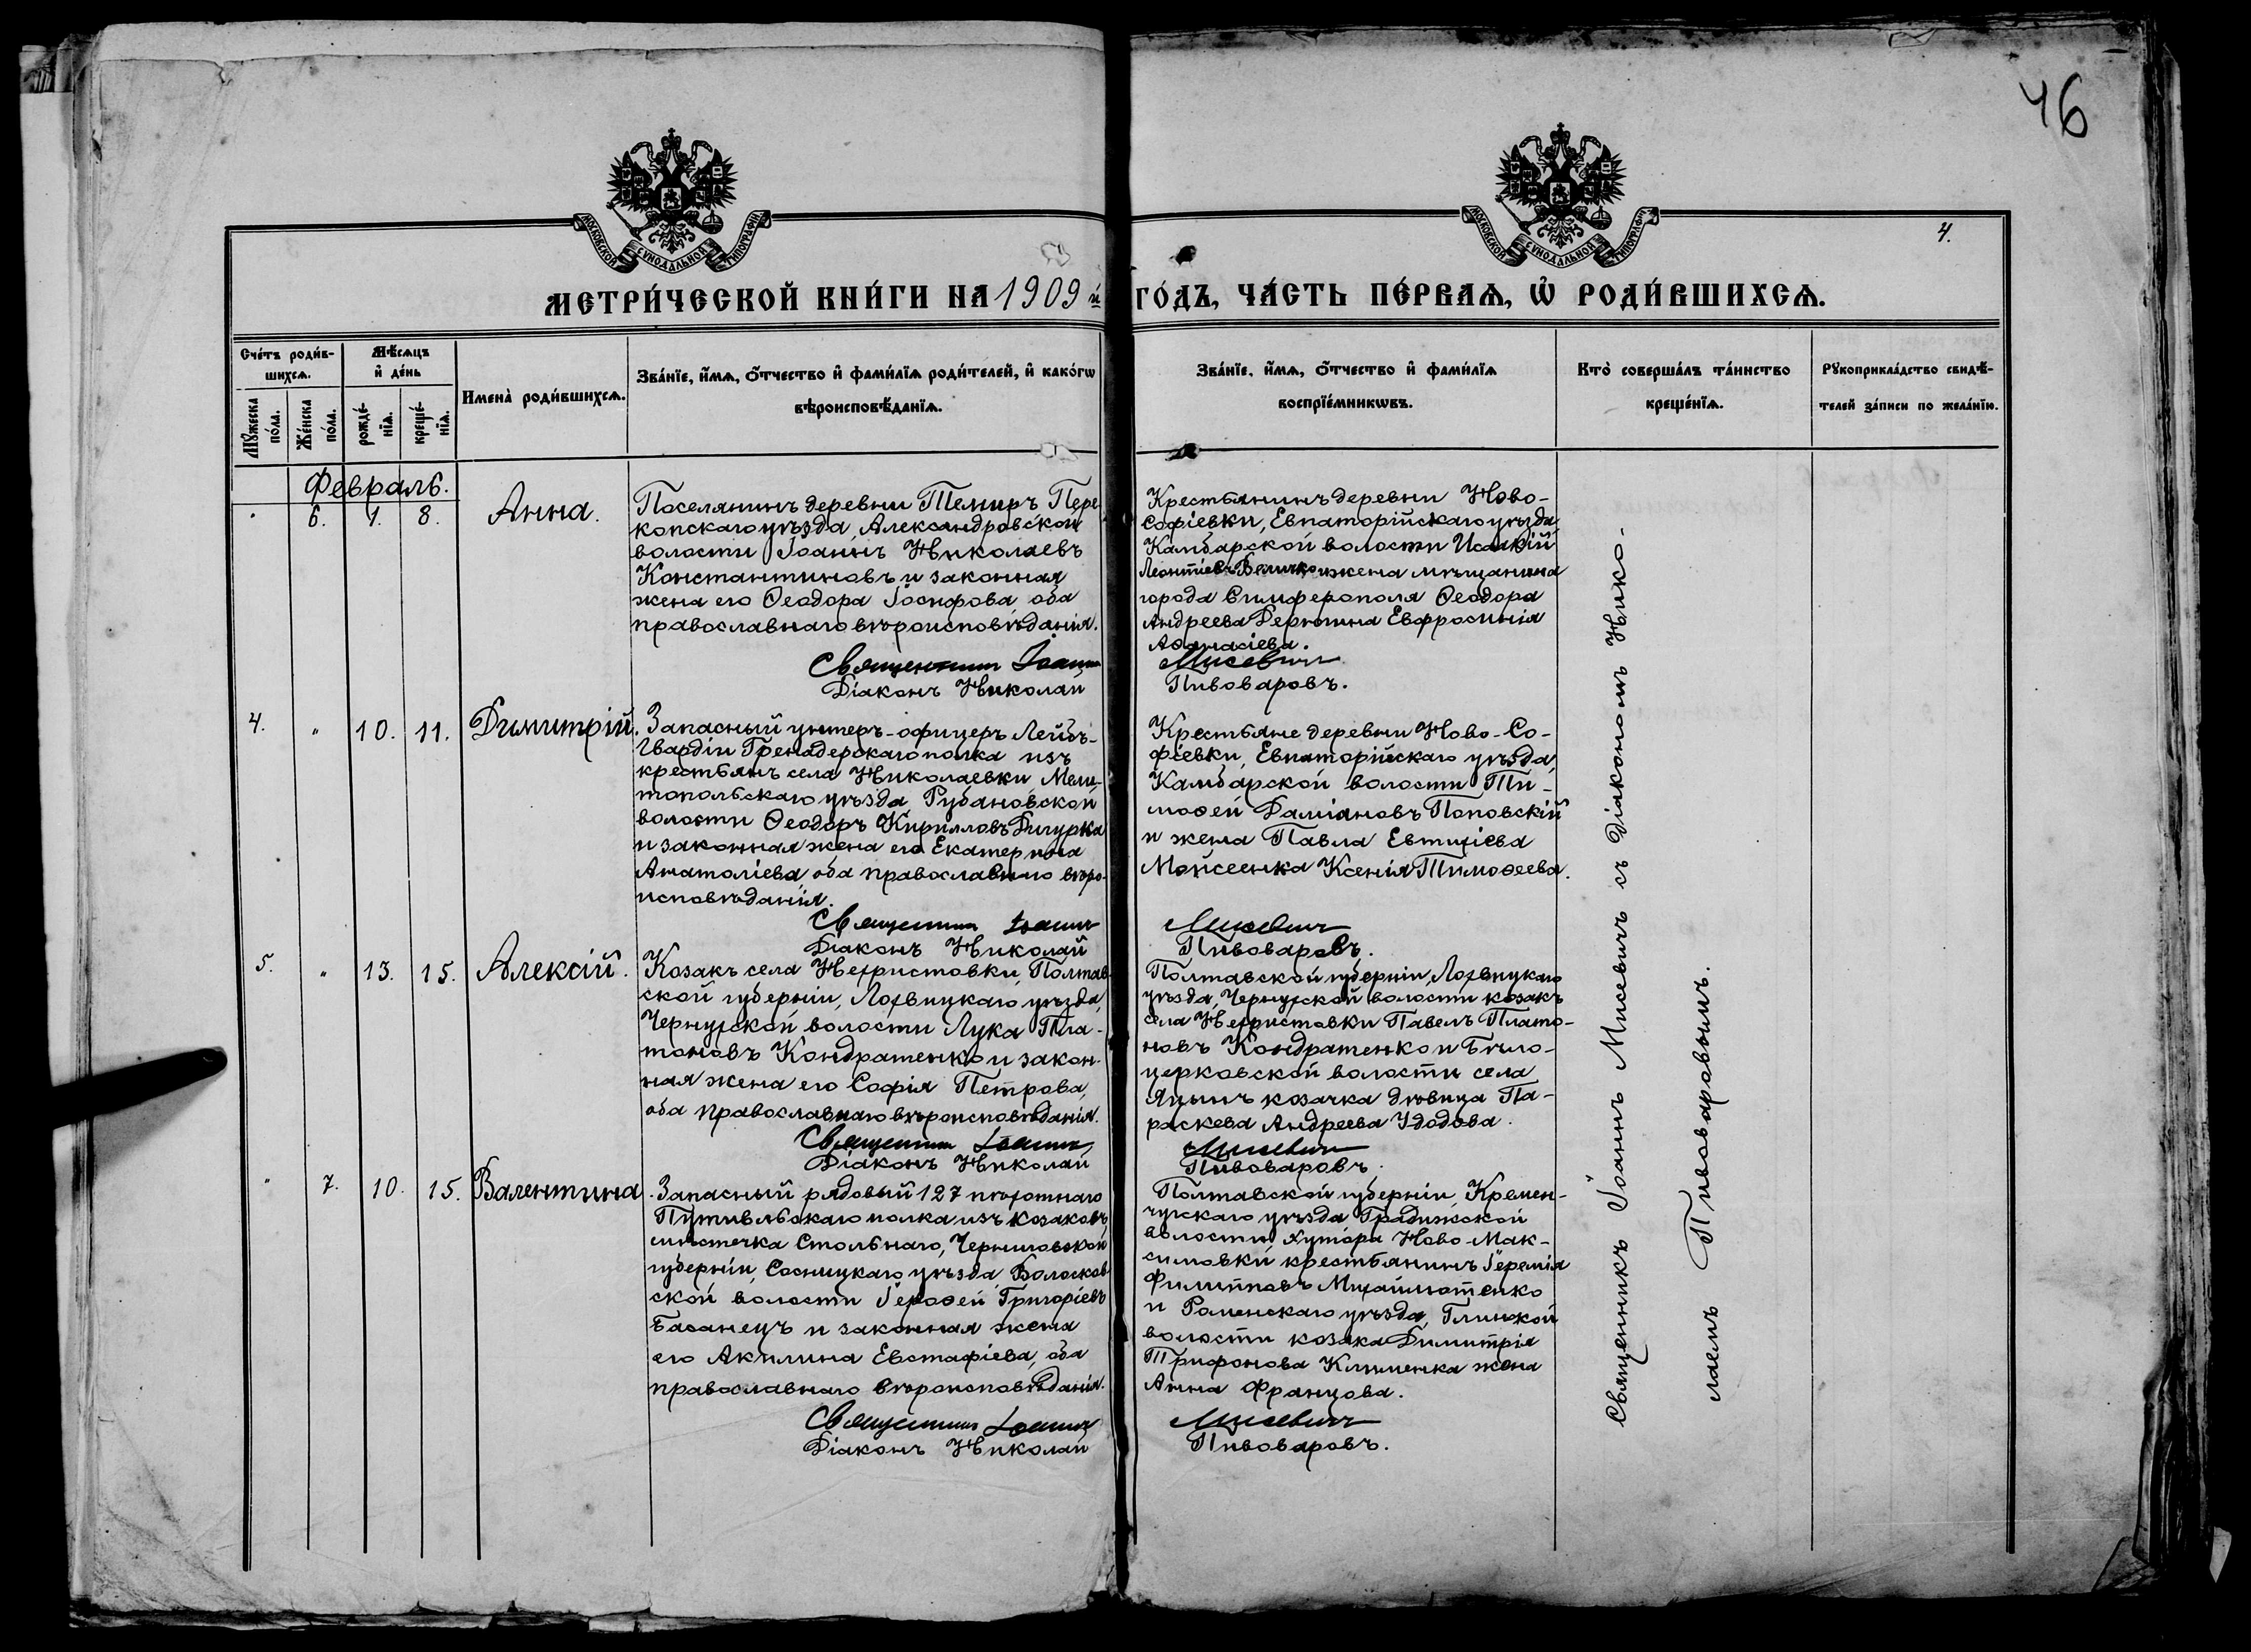 46
4.
МОСКОВСКОЙ СѴНОДАЛЬНОЙ ТИПОГРАФІИ
МОСКОВСКОЙ СѴНОДАЛЬНОЙ ТИПОГРАФІИ
МЕТРИ́ЧЕСКОЙ КНИ́ГИ НА 1909 й ГО́ДЪ, ЧА́СТЬ ПЕ́РВАѦ, Ѡ҆ РОДИ́ВШИХСѦ.
Сче́тъ роди́в-
шихсѧ.
Мѣ́сѧцъ
и҆ де́нь
Мꙋ́жеска
по́ла.
Же́нска
по́ла.
рожде́-
нїѧ.
креще́-
нїѧ.
Имена̀ роди́вшихсѧ.
Зва́нїе, и҆́мѧ, ѻ҆́тчество и҆ фами́лїѧ роди́телей, и҆ како́гѡ
вѣроисповѣ́данїѧ.
Зва́нїе, и҆́мѧ, ѻ҆́тчество и҆ фами́лїѧ
воспрїе́мникѡвъ.
Кто̀ соверша́лъ та́инство
креще́нїѧ.
Рꙋкоприкла́дство свидѣ́-
телей за́писи по жела́нїю.
Февраль.
" 6. 1. 8. Анна.
Поселянинъ деревни Темиръ Пере
копскаго уѣзда, Александровской
волости Іоаннъ Николаевъ
Константиновъ и законная
жена его Ѳеодора Іосифова, оба
православнаго вѣроисповѣданія.
Священникъ Іоаннъ
Діаконъ Николай
Крестьянинъ деревни Ново-
Софіевки, Евпаторійскаго уѣзда
Камбарской волости Исаакій
Леонтіевъ Величко и жена мѣщанина
города Симферополя Ѳеодора
Андреева Дерюгина Евфросинія
Аѳанасіева.
Мисевичъ
Пивоваровъ.
4. " 10. 11. Димитрій.
Запасный унтеръ-офицеръ Лейбъ-
Гвардіи Гренадерскаго полка изъ
крестьянъ села Николаевки Мели-
топольскаго уѣзда, Рубановской
волости Ѳеодоръ Кирилловъ Дигурка
и законная жена его Екатерина
Анатоліева оба православнаго вѣро-
исповѣданія.
Священникъ Іоаннъ
Діаконъ Николай
Крестьяне деревни Ново-Со-
фіевки, Евпаторійскаго уѣзда,
Камбарской волости Ти-
моѳей Даміановъ Поповскій
и жена Павла Евтихіева
Мойсеенка Ксенія Тимоѳеева.
Мисевичъ
Пивоваровъ.
5. " 13. 15. Алексій.
Козакъ села Нехристовки, Полтав
ской губерніи, Лохвицкаго уѣзда,
Чернухской волости Лука Пла-
тоновъ Кондратенко и закон-
ная жена его Софія Петрова,
оба православнаго вѣроисповѣданія.
Священникъ Іоаннъ
Діаконъ Николай
Полтавской губерніи, Лохвицкаго
уѣзда, Чернухской волости козакъ
села Нехристовки Павелъ Плато-
новъ Кондратенко и Бѣло-
церковской волости села
Яцынъ козачка дѣвица Па-
раскева Андреева Удодова.
Мисевичъ
Пивоваровъ.
" 7. 10. 15. Валентина.
Запасный рядовый 127 пѣхотнаго
Путивльскаго полка изъ козаковъ
мѣстечка Стольнаго, Черниговской
губерніи, Сосницкаго уѣзда, Волосков
ской волости Іероѳей Григоріевъ
Басанецъ и законная жена
его Акилина Евстафіева, оба
православнаго вѣроисповѣданія.
Священникъ Іоаннъ
Діаконъ Николай
Полтавской губерніи, Кремен-
чугскаго уѣзда Градижской
волости хутора Ново-Мак-
симовки крестьянинъ Іеремія
Филипповъ Михайлютенко
и Роменскаго уѣзда, Глинской
волости козака Димитрія
Трифонова Клименка жена
Анна Францова.
Мисевичъ
Пивоваровъ.
Священникъ Іоаннъ Мисевичъ съ Діакономъ Нико-
лаемъ Пивоваровымъ.